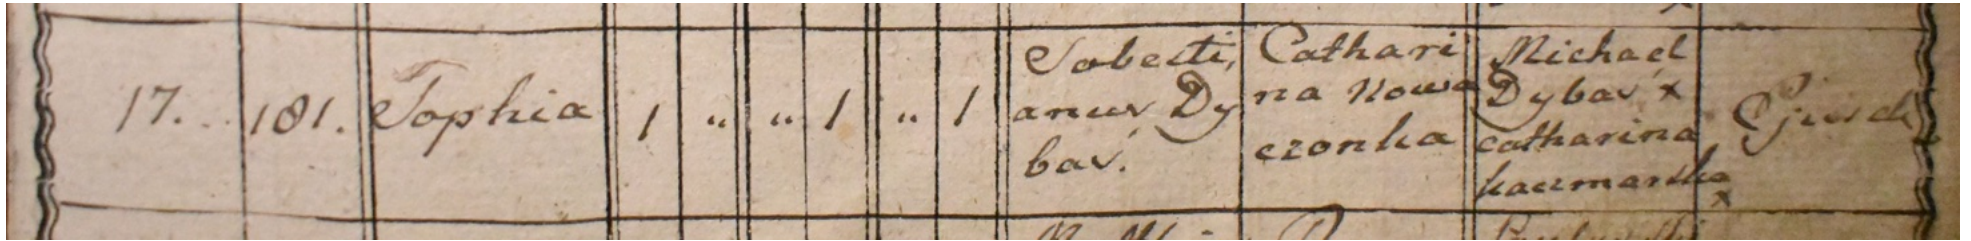 17. 181. Sophia 1 " " 1 " 1
Sobesti,
anus Dy
bas.
Cathari
na Nowa
czonka
Michael
Dybas x
catharina
kaczmarska
x